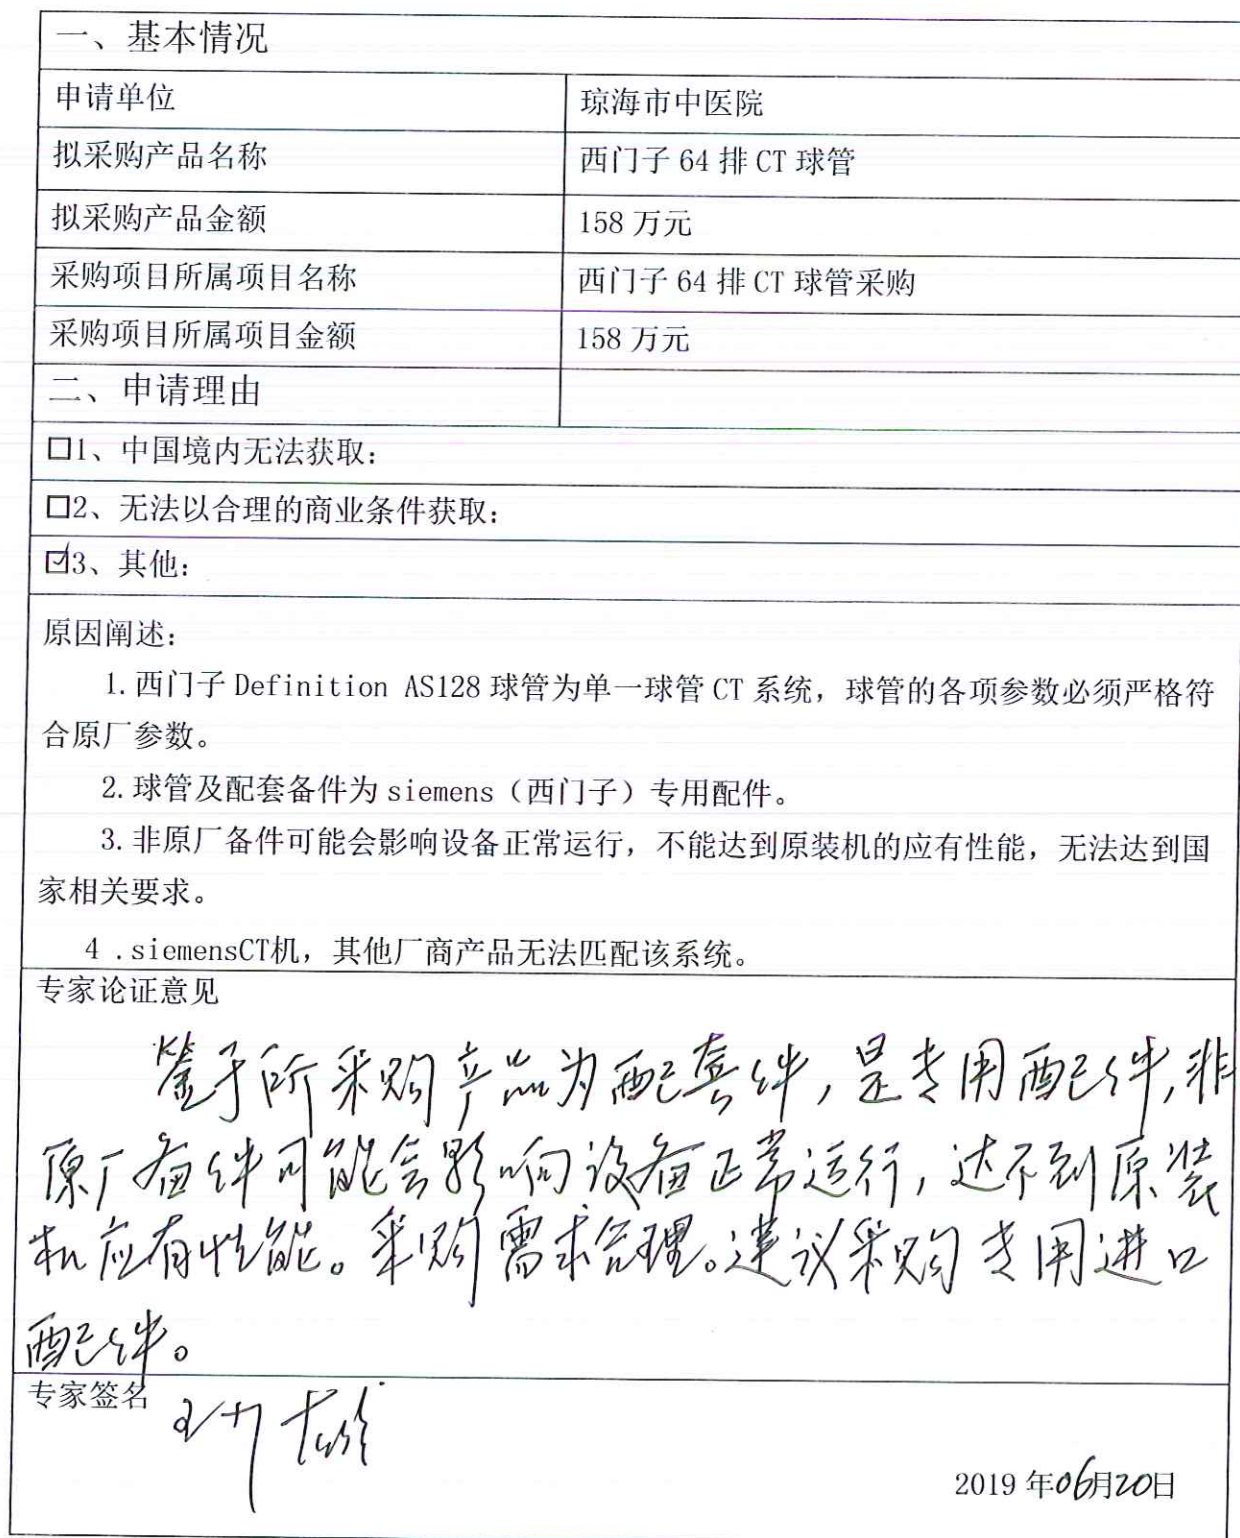 一、基本情况
申请单位 琼海市中医院
拟采购产品名称 西门子 64 排 CT 球管
拟采购产品金额 158 万元
采购项目所属项目名称 西门子 64 排 CT 球管采购
采购项目所属项目金额 158 万元
二、申请理由
☐1、中国境内无法获取:
☐2、无法以合理的商业条件获取:
☑3、其他:
原因阐述:
1.西门子 Definition AS128 球管为单一球管 CT 系统，球管的各项参数必须严格符
合原厂参数。
2.球管及配套备件为 siemens（西门子）专用配件。
3.非原厂备件可能会影响设备正常运行，不能达到原装机的应有性能，无法达到国
家相关要求。
4 .siemensCT机，其他厂商产品无法匹配该系统。
专家论证意见
鉴于所采购产品为配套件，是专用配件，非
原厂备件可能会影响设备正常运行，达不到原装
机应有性能。采购需求合理。建议采购专用进口
配件。
专家签名
2019 年06月20日